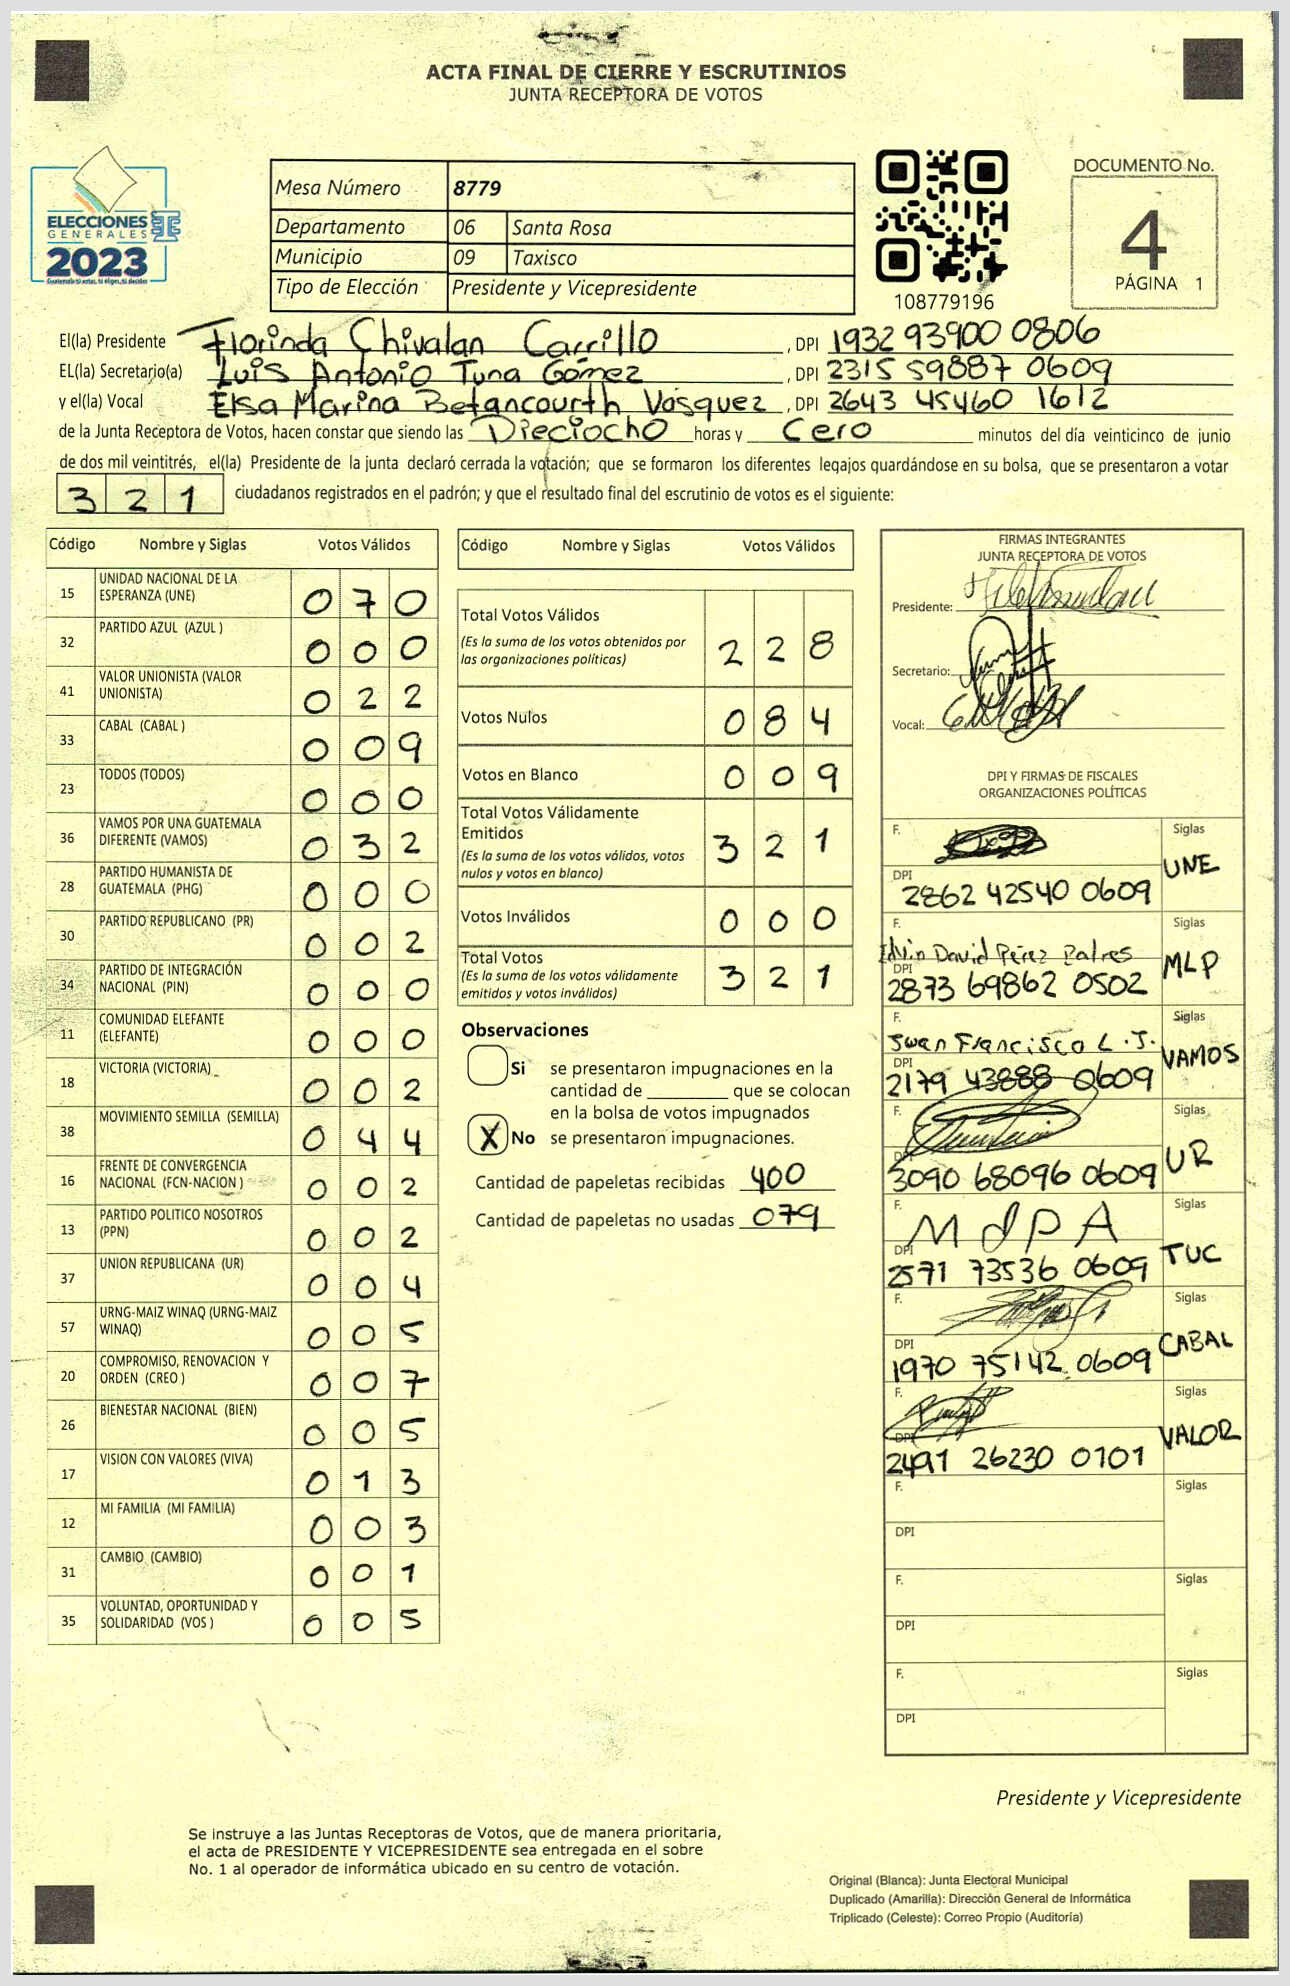 ACTA FINAL DE CIERRE Y ESCRUTINIOS
JUNTA RECEPTORA DE VOTOS
ELECCIONES
GENERALES
2023
Guatemala tú votas, tú eliges, tú decides
Mesa Número 8779
Departamento 06 Santa Rosa
Municipio 09 Taxisco
Tipo de Elección Presidente y Vicepresidente
108779196
DOCUMENTO No.
4
PÁGINA 1
El(la) Presidente Florinda Chivalan Carrillo, DPI 1932 93900 0806
EL(la) Secretario(a) Luis Antonio Tuna Gómez, DPI 2315 59887 0609
y el(la) Vocal Elsa Marina Betancourth Vasquez, DPI 2643 45460 1612
de la Junta Receptora de Votos, hacen constar que siendo las Dieciocho horas y Cero minutos del día veinticinco de junio
de dos mil veintitrés, el(la) Presidente de la junta declaró cerrada la votación; que se formaron los diferentes legajos guardándose en su bolsa, que se presentaron a votar
321 ciudadanos registrados en el padrón; y que el resultado final del escrutinio de votos es el siguiente:
Código Nombre y Siglas Votos Válidos
15 UNIDAD NACIONAL DE LA ESPERANZA (UNE) 070
32 PARTIDO AZUL (AZUL ) 000
41 VALOR UNIONISTA (VALOR UNIONISTA) 022
33 CABAL (CABAL ) 009
23 TODOS (TODOS) 000
36 VAMOS POR UNA GUATEMALA DIFERENTE (VAMOS) 032
28 PARTIDO HUMANISTA DE GUATEMALA (PHG) 000
30 PARTIDO REPUBLICANO (PR) 002
34 PARTIDO DE INTEGRACIÓN NACIONAL (PIN) 000
11 COMUNIDAD ELEFANTE (ELEFANTE) 000
18 VICTORIA (VICTORIA) 002
38 MOVIMIENTO SEMILLA (SEMILLA) 044
16 FRENTE DE CONVERGENCIA NACIONAL (FCN-NACION ) 002
13 PARTIDO POLITICO NOSOTROS (PPN) 002
37 UNION REPUBLICANA (UR) 004
57 URNG-MAIZ WINAQ (URNG-MAIZ WINAQ) 005
20 COMPROMISO, RENOVACION Y ORDEN (CREO ) 007
26 BIENESTAR NACIONAL (BIEN) 005
17 VISION CON VALORES (VIVA) 013
12 MI FAMILIA (MI FAMILIA) 003
31 CAMBIO (CAMBIO) 001
35 VOLUNTAD, OPORTUNIDAD Y SOLIDARIDAD (VOS ) 005
Código Nombre y Siglas Votos Válidos
Total Votos Válidos 228
(Es la suma de los votos obtenidos por
las organizaciones políticas)
Votos Nulos 084
Votos en Blanco 009
Total Votos Válidamente
Emitidos 321
(Es la suma de los votos válidos, votos
nulos y votos en blanco)
Votos Inválidos 000
Total Votos 321
(Es la suma de los votos válidamente
emitidos y votos inválidos)
Observaciones
Si se presentaron impugnaciones en la
cantidad de ________ que se colocan
en la bolsa de votos impugnados
X No se presentaron impugnaciones.
Cantidad de papeletas recibidas 400
Cantidad de papeletas no usadas 079
FIRMAS INTEGRANTES
JUNTA RECEPTORA DE VOTOS
Presidente:
Secretario:
Vocal:
DPI Y FIRMAS DE FISCALES
ORGANIZACIONES POLÍTICAS
F. Siglas
DPI 2862 42540 0609 UNE
F. Edvin David Pérez Siglas
DPI 2873 69862 0502 MLP
F. Juan Francisco L.J. Siglas
DPI 2179 43888 0609 VAMOS
F. Siglas
DPI 3090 68096 0609 UR
F. MJPA Siglas
DPI 2571 73536 0609 TUC
F. Siglas
DPI 1970 75142 0609 CABAL
F. Siglas
DPI 2491 26230 0101 VALOR
F. Siglas
DPI
F. Siglas
DPI
F. Siglas
DPI
Presidente y Vicepresidente
Se instruye a las Juntas Receptoras de Votos, que de manera prioritaria,
el acta de PRESIDENTE Y VICEPRESIDENTE sea entregada en el sobre
No. 1 al operador de informática ubicado en su centro de votación.
Original (Blanca): Junta Electoral Municipal
Duplicado (Amarilla): Dirección General de Informática
Triplicado (Celeste): Correo Propio (Auditoría)